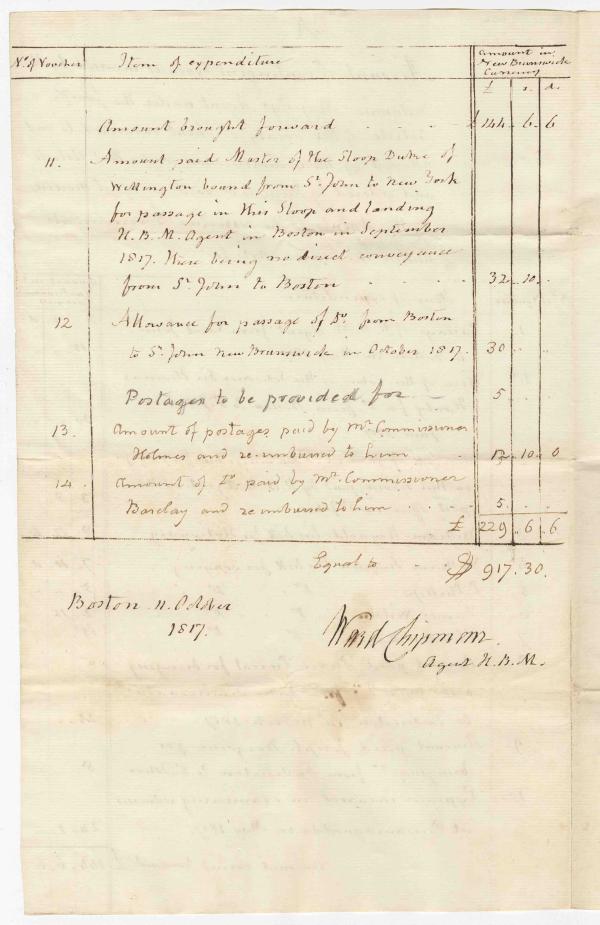 No. of Voucher Item of expenditure Amount in
New Brunswick
Currency
£ s. d.
Amount brought forward £ 144 . 6 . 6
11. Amount paid Master of the Sloop Duke of
Wellington bound from St. John to New York
for passage in this Sloop and landing
H. B. M. Agent in Boston in September
1817. there being no direct conveyance
from St. John to Boston 32 . 10 .
12 Allowance for passage of Do. from Boston
to St. John New Brunswick in October 1817. 30 . .
Postages to be provided for 5 . .
13. Amount of postages paid by Mr. Commissioner
Holmes and re-imbursed to him 12 . 10 . 0
14. Amount of Do. paid by Mr. Commissioner
Barclay and re imbursed to him 5 . .
£ 229 . 6 . 6
Equal to $ 917.30.
Boston 11. October
1817.
Ward Chipman
Agent H. B. M.